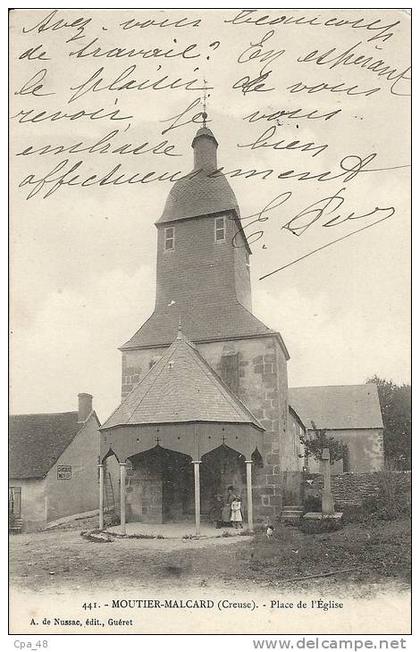 Avez-vous beaucoup
de travail? En espérant
le plaisir de vous
revoir, je vous
embrasse bien
affectueusement
441. - MOUTIER-MALCARD (Creuse). - Place de l'Église
A. de Nussac, édit., Guéret
Cpa_48
www.delcampe.net